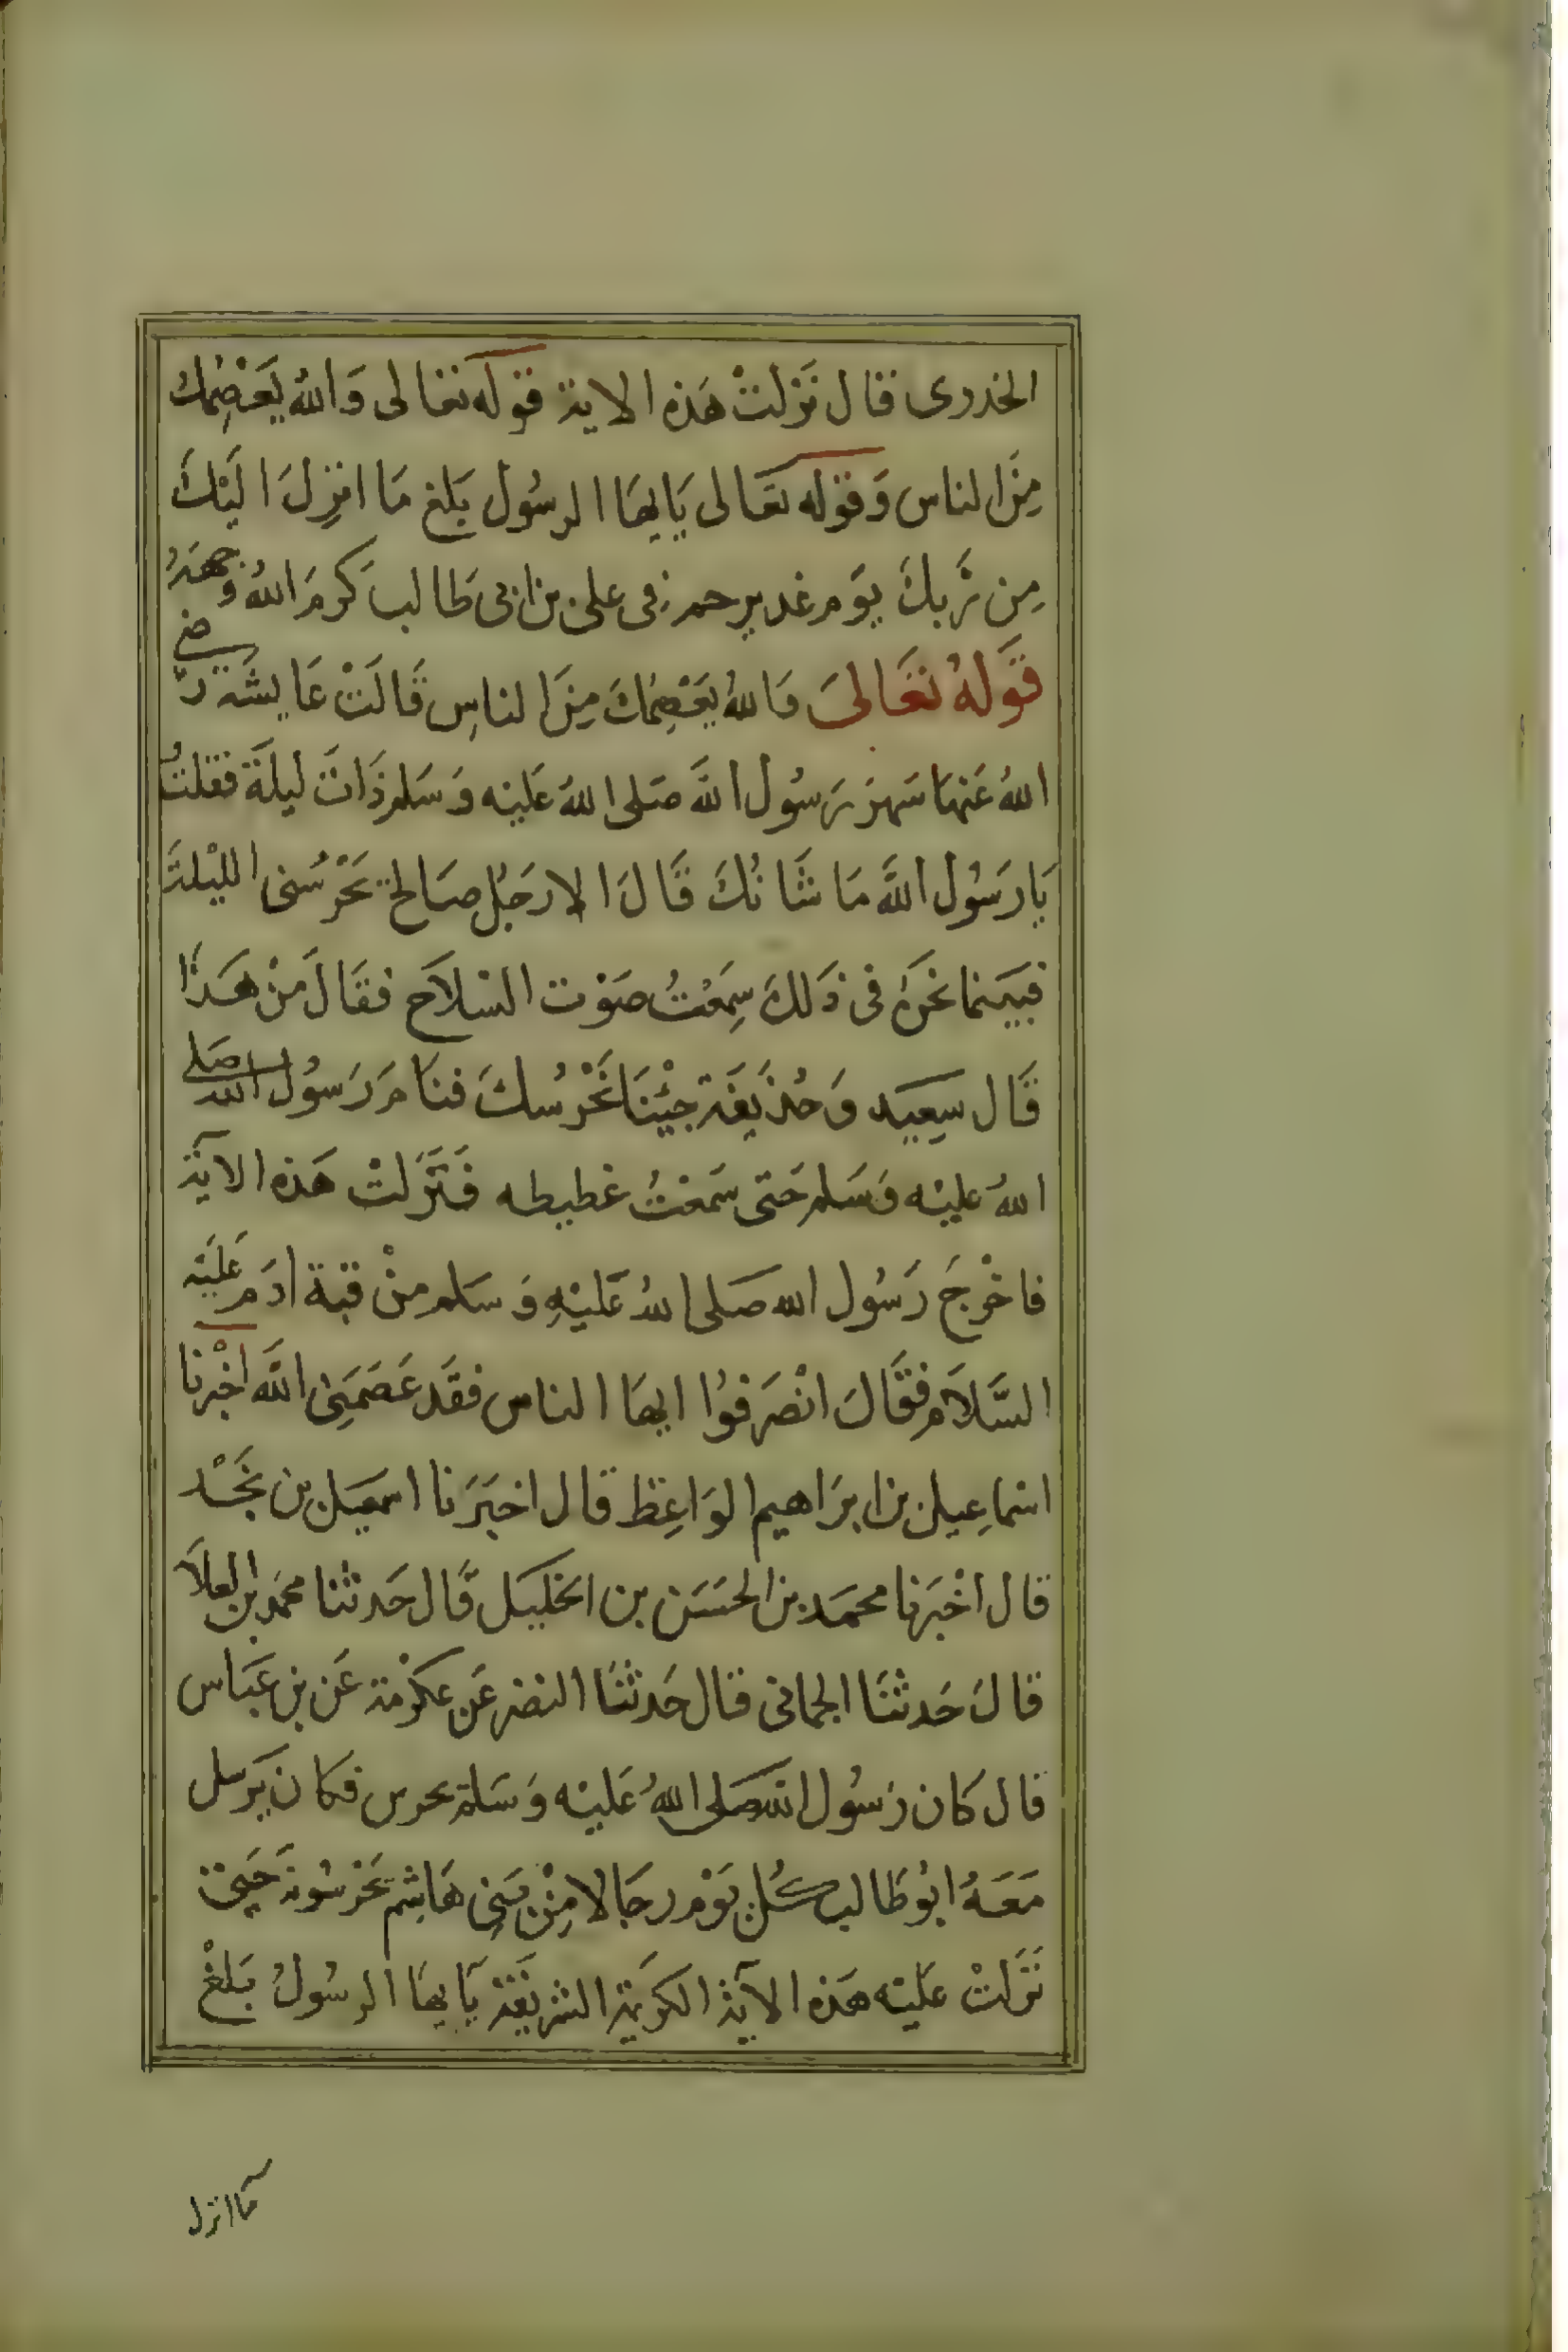 الخدرى قال نَزلتْ هَذه الاية قوله تعالى وَاللهُ يَعْصِمُك
مِنَ الناس وَقوله تعَالى يَايهَا الرسُول بَلغ مَا انزِلَ اليْكَ
مِن رَّبكَ يَوم غدير خم فى على بن ابى طَالب كرمَ اللهُ وجهَهُ
قَولهُ تعَالىَ وَاللهُ يَعْصِمُكَ مِنَ الناسِ قَالَتْ عَايشَة رَضى
اللهُ عَنهَا سَهرَ رَسُول اللَّه صَلى اللهُ عَليْه وَسَلم ذَاتَ ليلَة فقلتُ
يَا رَسُول اللَّه مَا شَانُكَ قَالَ الا رَجُل صَالح يَحْرُسُنى الليْلَة
فبَينما نحَن فى ذَلكَ سِمَعْتُ صَوْت السْلاَح فقَالَ مَنْ هَذَا
قَال سعِيد وَحُذيفَة جِئْنَا نَحْرُسكَ فنَام رَسُول الله صَلى
اللهُ عليْه وَسَلم حَتى سَمعْتُ غطيطه فَنَزَلتْ هَذه الآية
فاخْرجَ رَسُول الله صَلى اللهُ عَليْهِ وَسَلم منْ قبة ادَم عَلَيْه
السَّلاَم فقَالَ انْصَرفوُا ايهَا الناس فقَد عَصَمَنِى اللَّه اخْبرنا
اسْماعِيل بن ابرَاهيم الوَاعِظ قال اخبَرَنا اسمعيَل بن نجَيْد
قال اخْبَرنا محمَد بن الحسَن بن الخليَل قَال حَدثنا محمَد بن العلاَ
قالَ حَدثْنَا الحمانى قال حَدثنَا النضر عَن عكرْمة عَن بن عبَاس
قال كَان رَسُول الله صَلى اللهُ عَليْه وَسَلم يحرس فكان يَرسل
مَعَهُ ابوُ طَالب كُل يَوْم رجَالا مِنْ بَنِى هَاشِم يَحْرسُونهَ حَتى
نَزَلتْ عَليْه هَذه الآية الكريمَة الشريفَة يَا يهَا الرسُولُ بَلغْ
مَا انزل